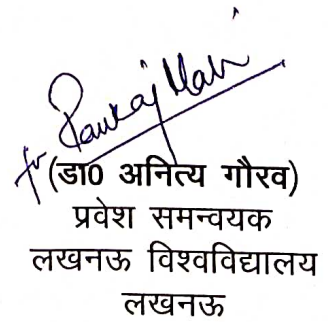 for Pankaj
(डा0 अनित्य गौरव)
प्रवेश समन्वयक
लखनऊ विश्वविद्यालय
लखनऊ